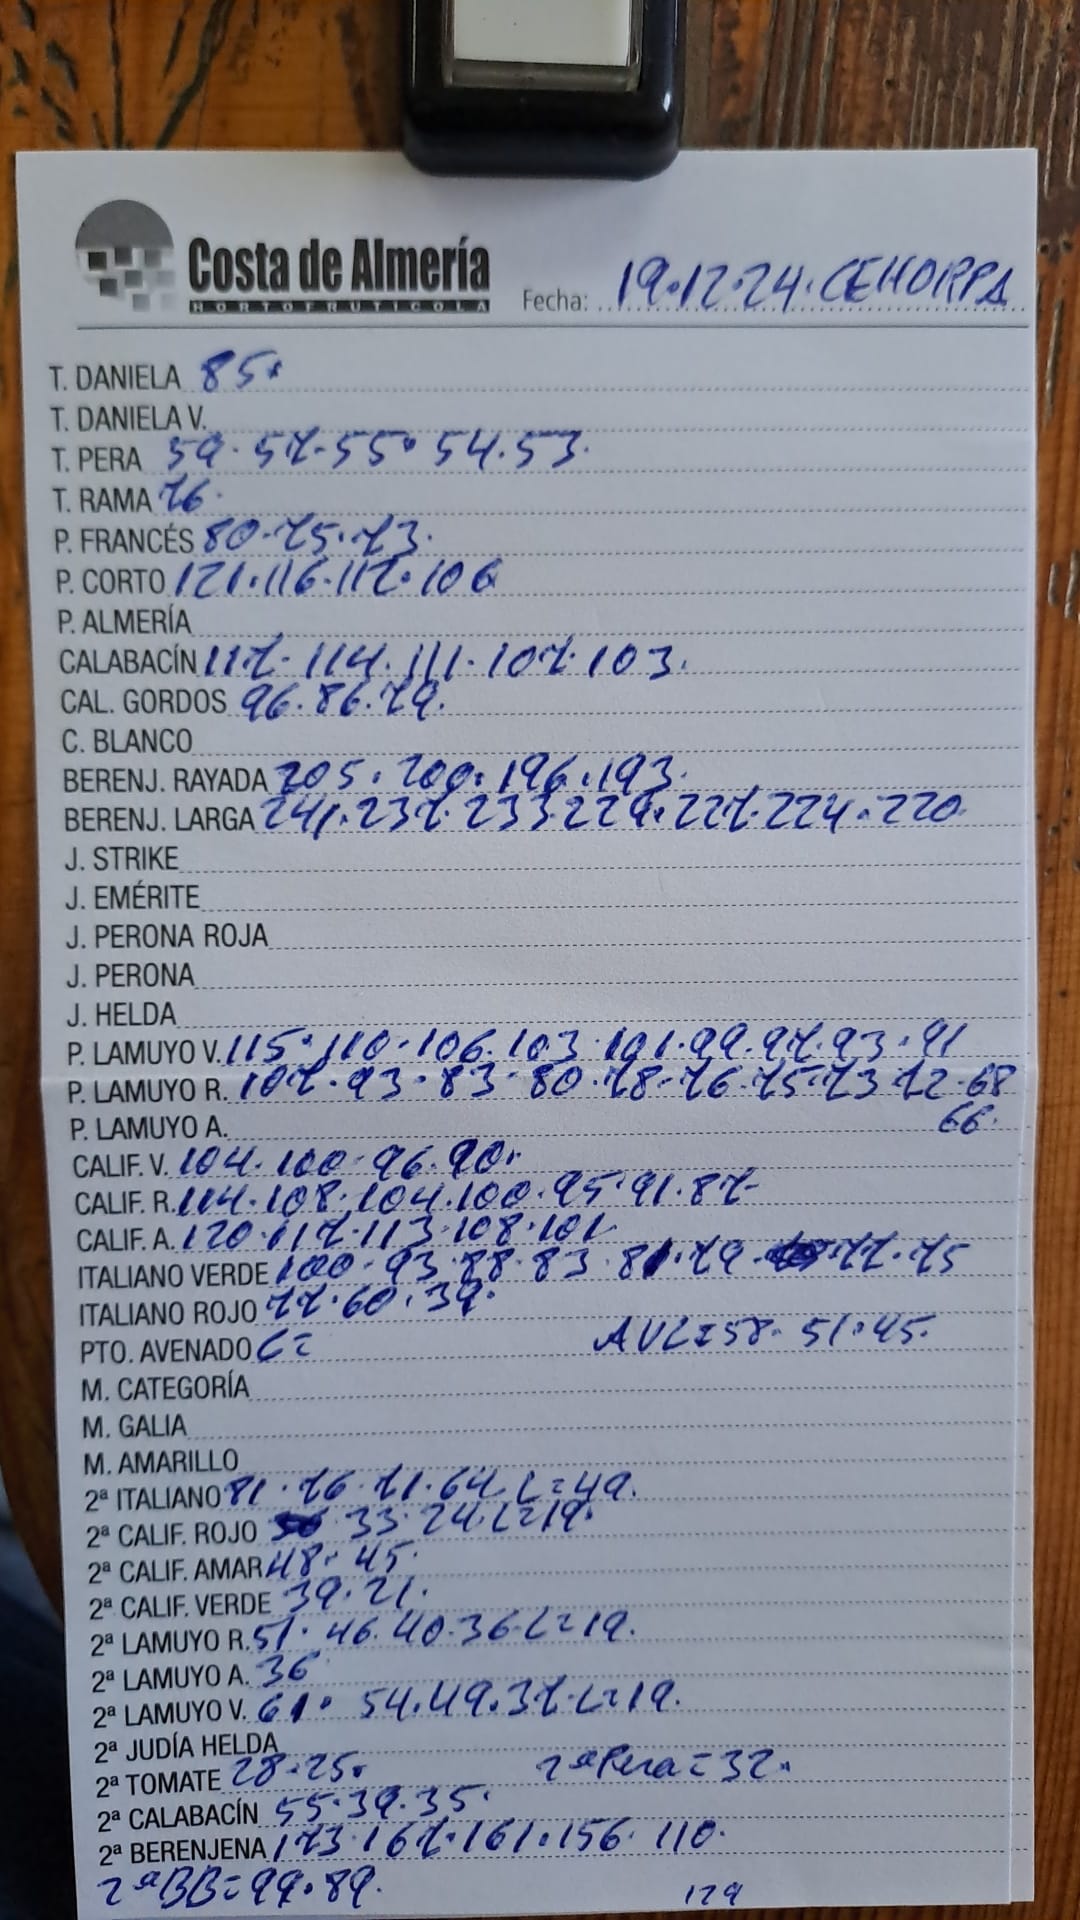 Costa de Almería
HORTOFRUTICOLA
Fecha: 19.12.24. CEHORPA
T. DANIELA 85.
T. DANIELA V.
T. PERA 59. 57-55. 54. 53.
T. RAMA 76.
P. FRANCÉS 80-75.73.
P. CORTO 121.116.112.106
P. ALMERÍA
CALABACÍN 117. 114. 111. 107. 103.
CAL. GORDOS 96.86.79.
C. BLANCO
BERENJ. RAYADA 205. 200. 196.193.
BERENJ. LARGA 241.237.233.229.227.224.220.
J. STRIKE
J. EMÉRITE
J. PERONA ROJA
J. PERONA
J. HELDA
P. LAMUYO V. 115.110.106.103.101.99.97.93.91
P. LAMUYO R. 107.93.83.80.78.76.75.73.72.68
P. LAMUYO A. 66.
CALIF. V. 104. 100. 96. 90.
CALIF. R. 114.108.104.100.95.91.87-
CALIF. A. 120.117.113.108.101
ITALIANO VERDE 100.93.88.83.81.79. 77.75
ITALIANO ROJO 77.60.39.
PTO. AVENADO C= AVL=58. 51.45.
M. CATEGORÍA
M. GALIA
M. AMARILLO
2ª ITALIANO 81.76.71.64. L=49.
2ª CALIF. ROJO 33. 24. L=19.
2ª CALIF. AMAR 48. 45.
2ª CALIF. VERDE 39.21.
2ª LAMUYO R. 51. 46.40.36. L=19.
2ª LAMUYO A. 36
2ª LAMUYO V. 61. 54.49.37. L=19.
2ª JUDÍA HELDA
2ª TOMATE 28.25. 2ª Pera=32.
2ª CALABACÍN 55.39.35.
2ª BERENJENA 173.167.161.156. 110.
2ªBB=99.89. 129